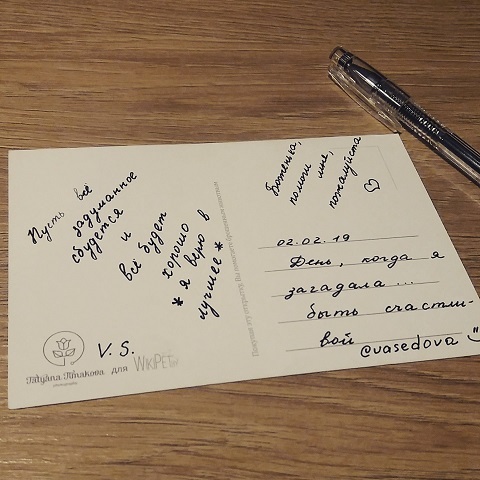 Пусть всё
задуманное
сбудется
и
всё будет
хорошо
* я верю в
лучшее *
V. S.
Tatyana Ginakova
для WIKIPET
Боженька,
помоги мне,
пожалуйста
02.02.19
День, когда я
загадала ...
быть счастли-
вой @vasedova